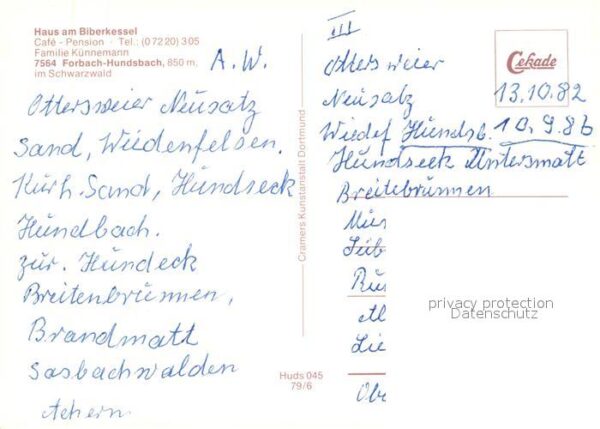 Haus am Biberkessel
Café - Pension · Tel.: (0 72 20) 3 05
Familie Künnemann
7564 Forbach-Hundsbach, 850 m,
im Schwarzwald
A. W.
Ottersweier Neusatz
Sand, Wiedenfelsen.
Kurh. Sand, Hundseck
Hundbach.
zur. Hundeck
Breitenbrunnen,
Brandmatt
Sasbachwalden
Achern
Cramers Kunstanstalt Dortmund
Huds 045
79/6
III
Cekade
Ottersweier
13.10.82
Neusatz
Wiedef Hundsb. 10.9.86
Hundseck Untersmatt
Breitebrunnen
privacy protection
Datenschutz